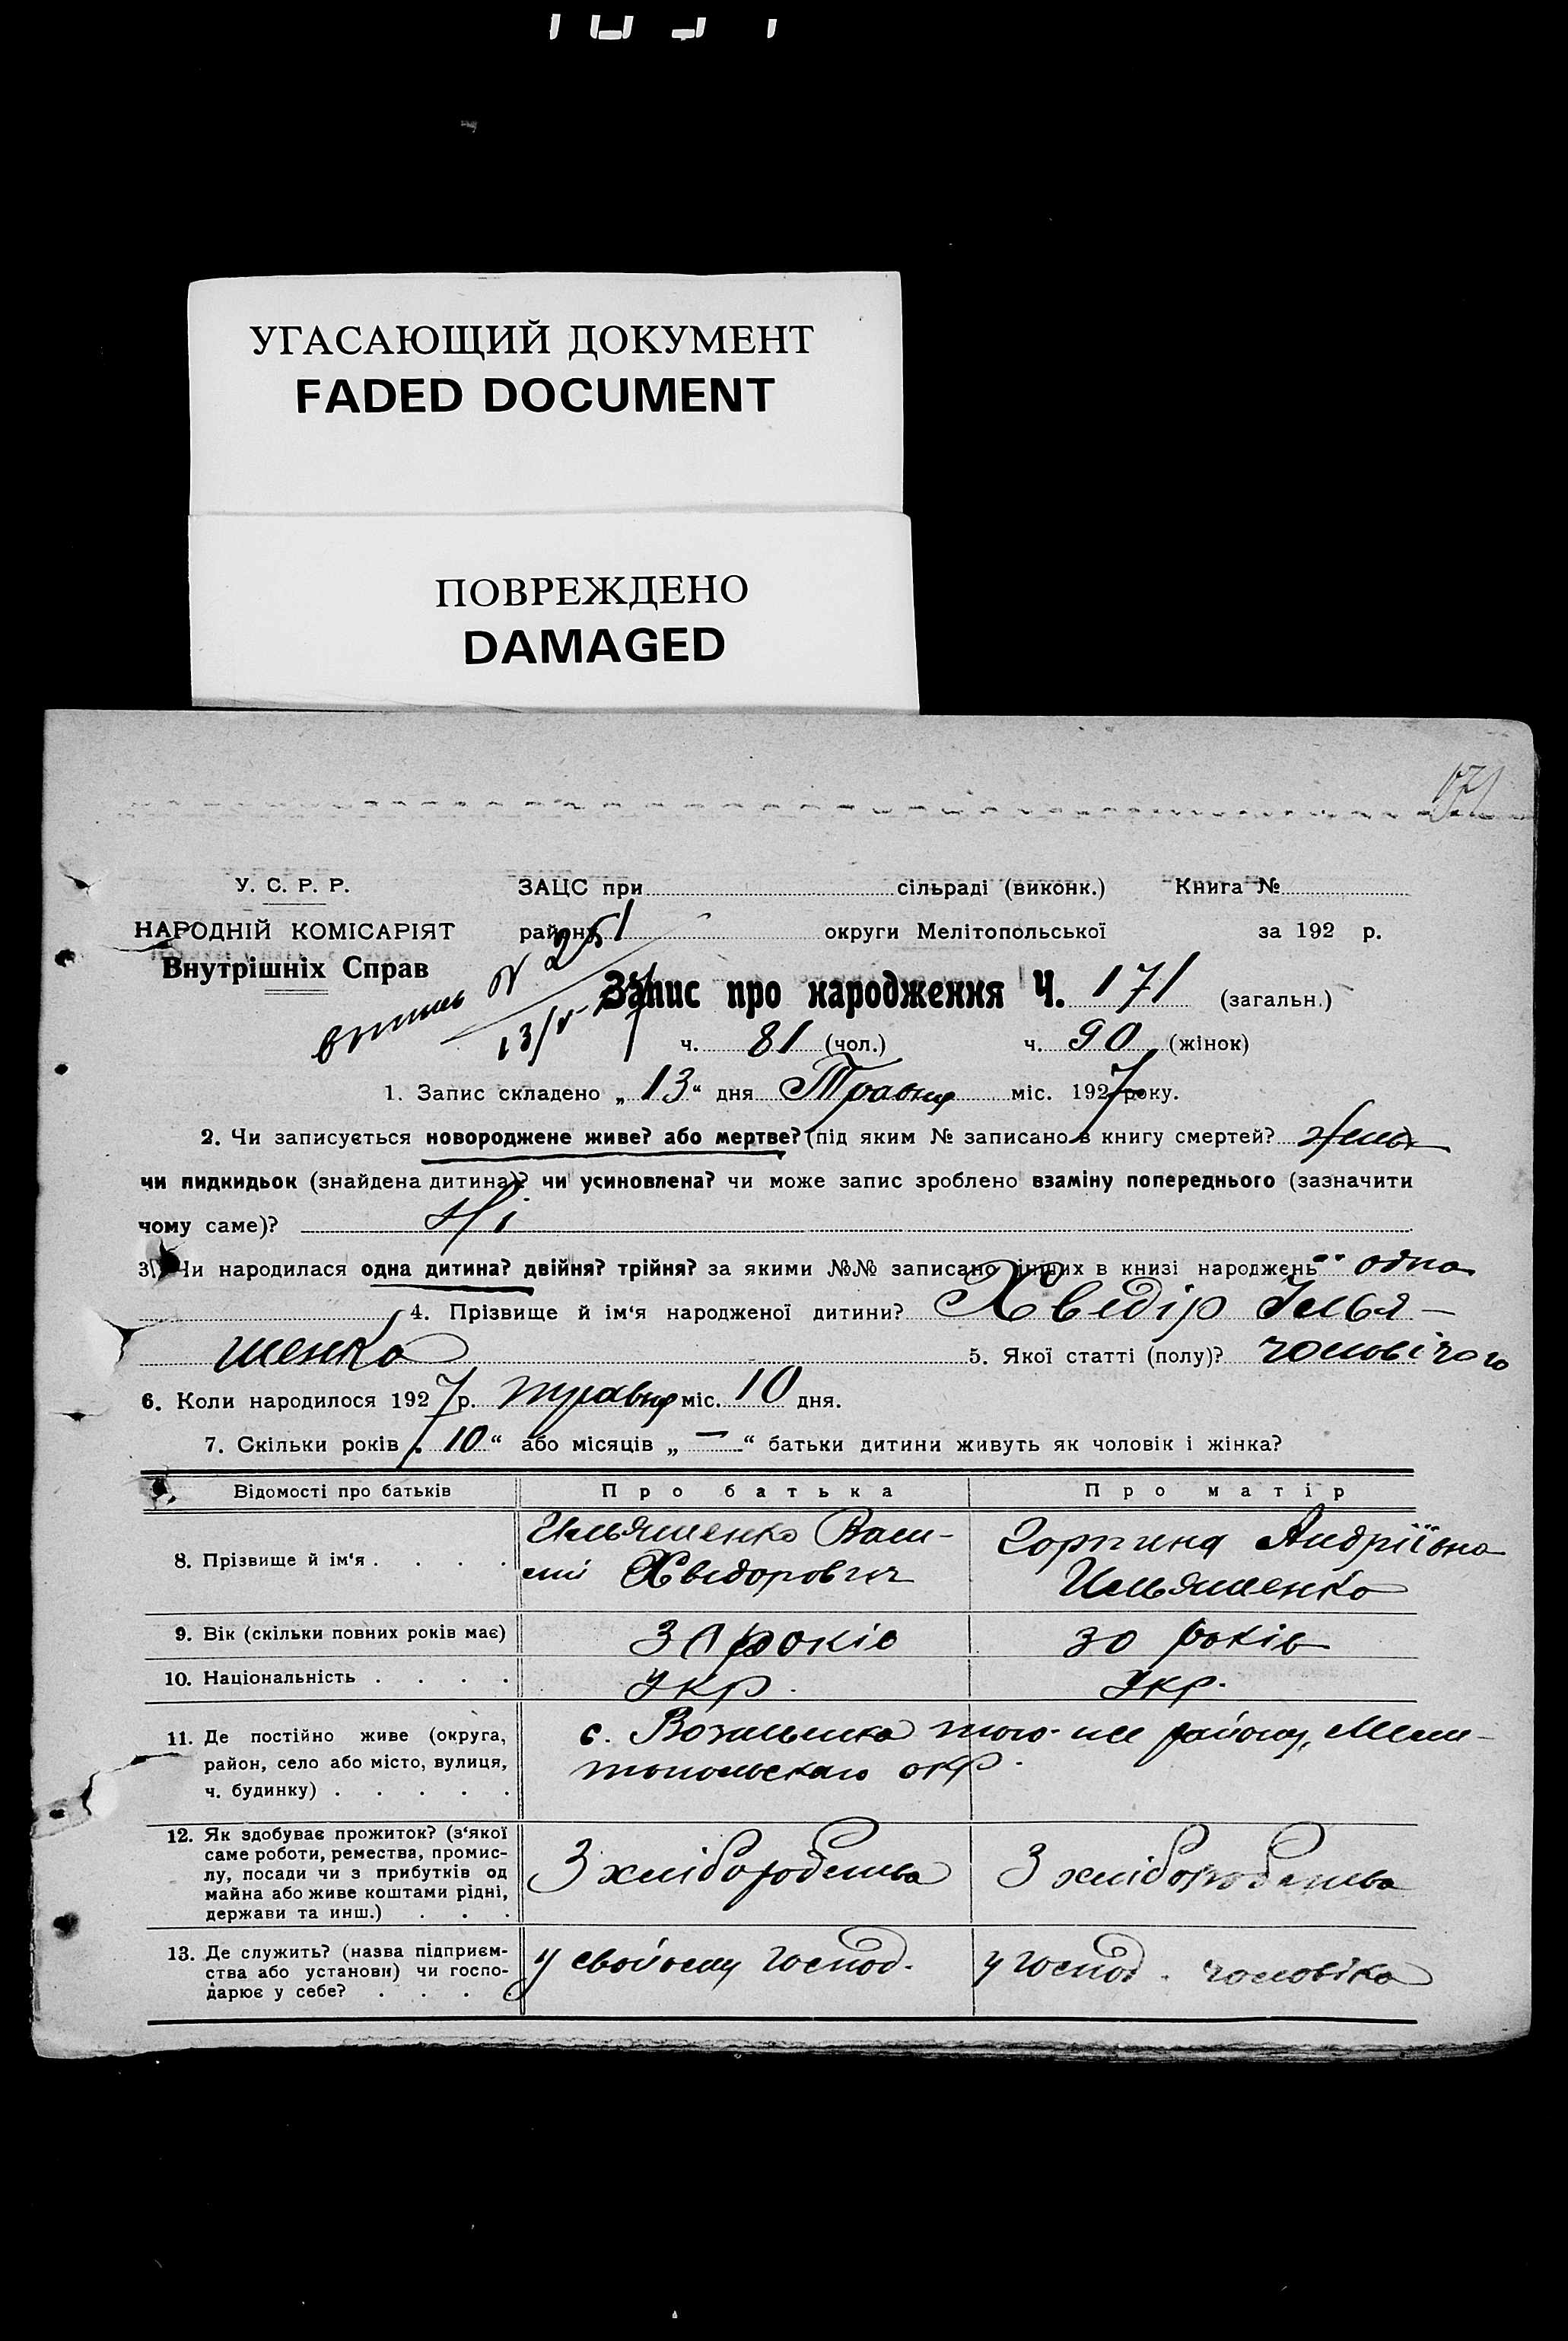 УГАСАЮЩИЙ ДОКУМЕНТ
FADED DOCUMENT
ПОВРЕЖДЕНО
DAMAGED
171
У. С. Р. Р.
ЗАЦС при сільраді (виконк.) Книга №
НАРОДНІЙ КОМІСАРІЯТ
району округи Мелітопольської за 192 р.
Внутрішніх Справ
№ 251
13/V
Запис про народження Ч. 171 (загальн.)
ч. 81 (чол.) ч. 90 (жінок)
1. Запис складено „ 13 “ дня Травня міс. 1927 року.
2. Чи записується новороджене живе? або мертве? (під яким № записано в книгу смертей?
чи пидкидьок (знайдена дитина)? чи усиновлена? чи може запис зроблено взаміну попереднього (зазначити
чому саме)? Ні
3. Чи народилася одна дитина? двійня? трійня? за якими №№ записано інших в книзі народжень одна
4. Прізвище й ім'я народженої дитини? Хведір Ілья-
шенко 5. Якої статті (полу)? чоловічого
6. Коли народилося 1927 р. травня міс. 10 дня.
7. Скільки років „ 10 “ або місяців „ — “ батьки дитини живуть як чоловік і жінка?
Відомості про батьків Про батька Про матір
8. Прізвище й ім'я . . . . Ильяшенко Васи-
лій Хведорович
Горпина Андріївна
Ильяшенко
9. Вік (скільки повних років має) 31 років 30 років
10. Національність . . . . Укр. Укр.
11. Де постійно живе (округа,
район, село або місто, вулиця,
ч. будинку) . . . . .
с. того-же району, Мели-
топольскаго окр.
12. Як здобуває прожиток? (з'якої
саме роботи, ремества, промис-
лу, посади чи з прибутків од
майна або живе коштами рідні,
держави та инш.) . . .
З хліборобства З хліборобства
13. Де служить? (назва підприєм-
ства або установи) чи госпо-
дарює у себе? . . . .
у свойому господ. у господ. чоловіка